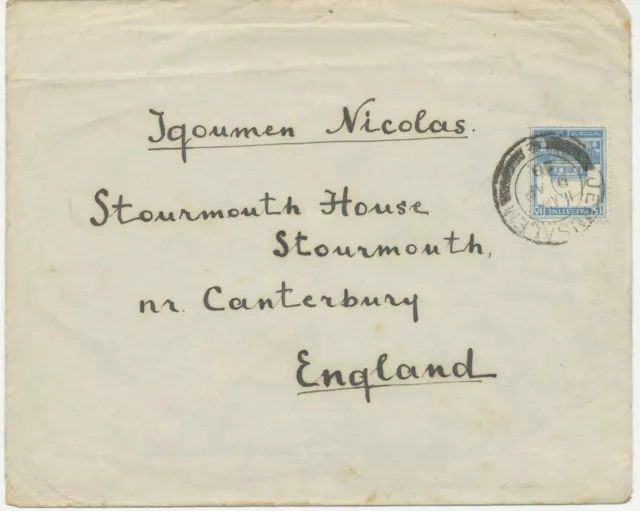 Igoumen Nicolas.
Stourmouth House
Stourmouth,
nr. Canterbury
England
JERUSALEM
PALESTINE